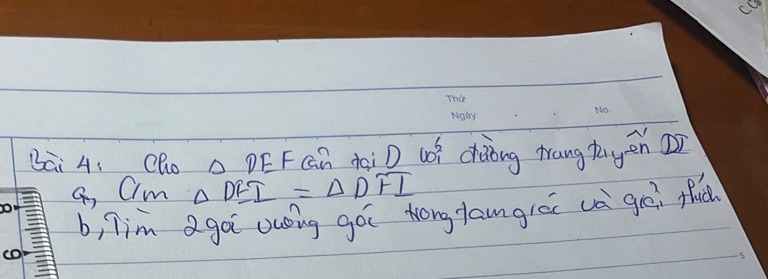 Thứ
Ngày . . No.
Bài 4: Cho Δ DEF cân tại D với đường trung tuyến DI
a, C/m Δ DEI = Δ DFI
b, Tìm 2 góc vuông góc trong tam giác và giải thích
8
9